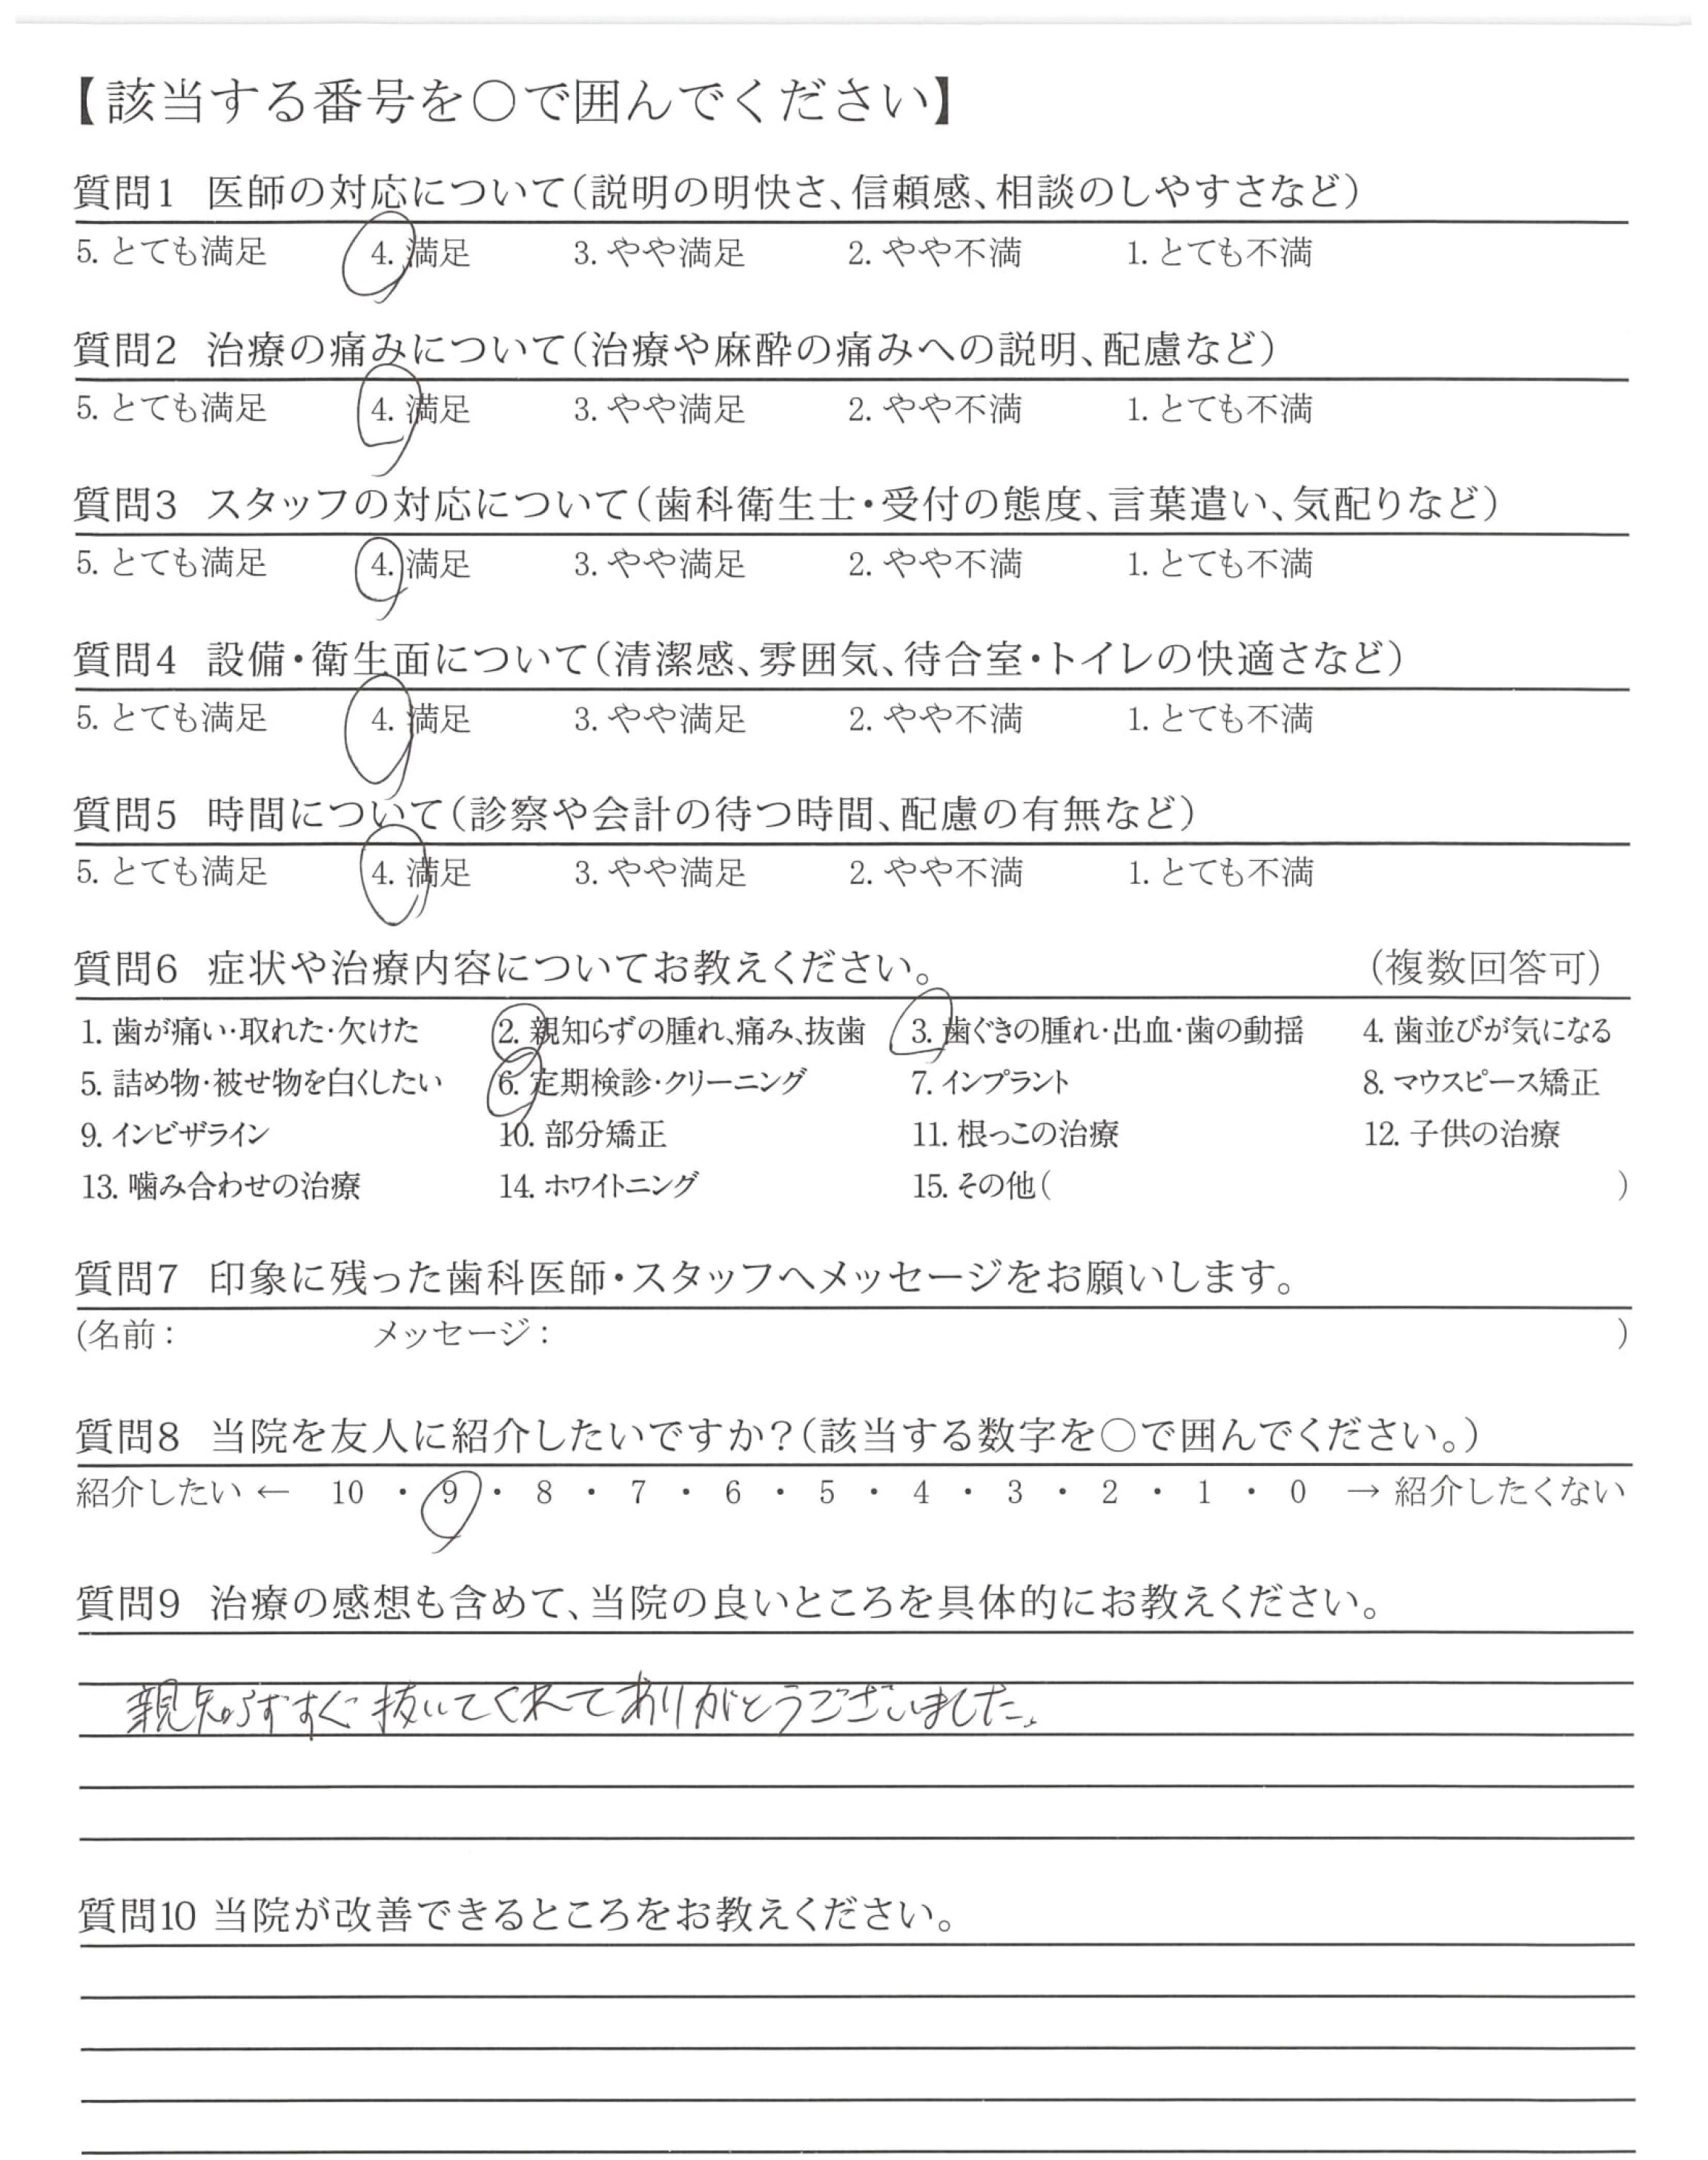 【該当する番号を○で囲んでください】
質問1 医師の対応について(説明の明快さ、信頼感、相談のしやすさなど)
5. とても満足 4. 満足 3. やや満足 2. やや不満 1. とても不満
質問2 治療の痛みについて(治療や麻酔の痛みへの説明、配慮など)
5. とても満足 4. 満足 3. やや満足 2. やや不満 1. とても不満
質問3 スタッフの対応について(歯科衛生士・受付の態度、言葉遣い、気配りなど)
5. とても満足 4. 満足 3. やや満足 2. やや不満 1. とても不満
質問4 設備・衛生面について(清潔感、雰囲気、待合室・トイレの快適さなど)
5. とても満足 4. 満足 3. やや満足 2. やや不満 1. とても不満
質問5 時間について(診察や会計の待つ時間、配慮の有無など)
5. とても満足 4. 満足 3. やや満足 2. やや不満 1. とても不満
質問6 症状や治療内容についてお教えください。 (複数回答可)
1. 歯が痛い・取れた・欠けた 2. 親知らずの腫れ、痛み、抜歯 3. 歯ぐきの腫れ・出血・歯の動揺 4. 歯並びが気になる
5. 詰め物・被せ物を白くしたい 6. 定期検診・クリーニング 7. インプラント 8. マウスピース矯正
9. インビザライン 10. 部分矯正 11. 根っこの治療 12. 子供の治療
13. 噛み合わせの治療 14. ホワイトニング 15. その他( )
質問7 印象に残った歯科医師・スタッフへメッセージをお願いします。
(名前: メッセージ: )
質問8 当院を友人に紹介したいですか?(該当する数字を○で囲んでください。)
紹介したい ← 10 ・ 9 ・ 8 ・ 7 ・ 6 ・ 5 ・ 4 ・ 3 ・ 2 ・ 1 ・ 0 → 紹介したくない
質問9 治療の感想も含めて、当院の良いところを具体的にお教えください。
親知らずすぐ抜いてくれてありがとうございました。
質問10 当院が改善できるところをお教えください。